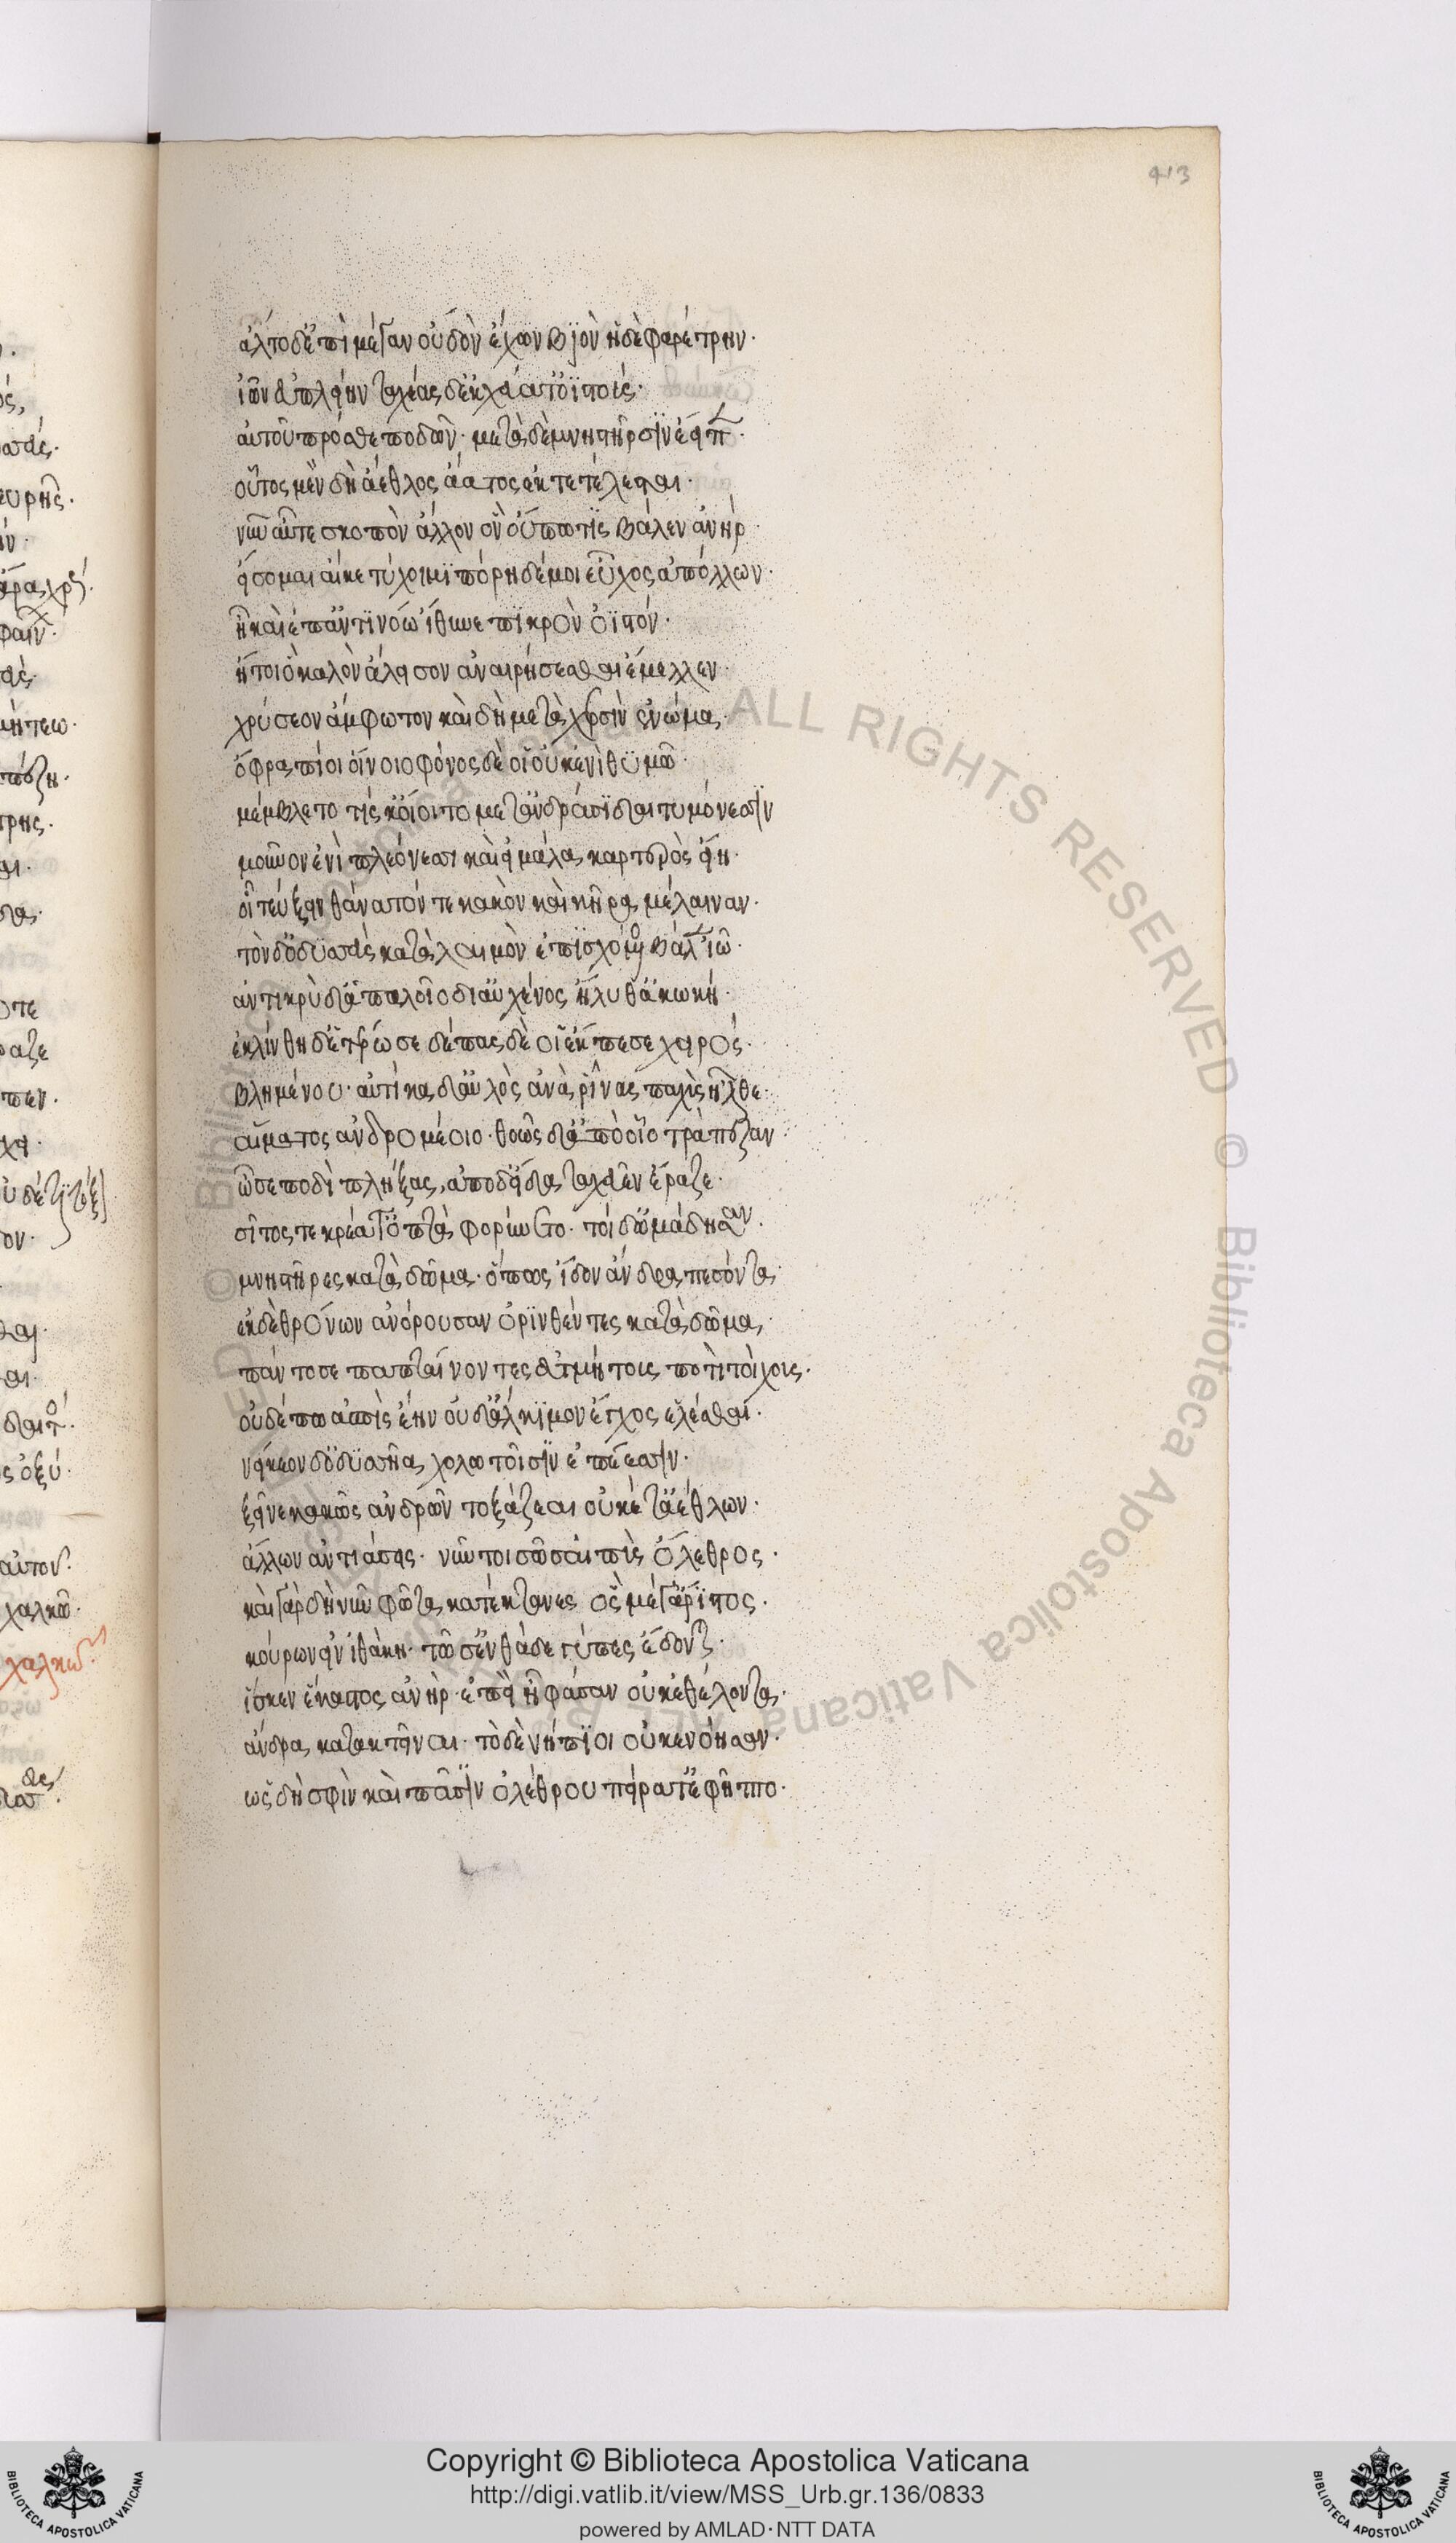 413
ἆλτο δ' ἐπὶ μέγαν οὐδὸν ἔχων βιὸν ἠδὲ φαρέτρην·
ἰῶν ἐμπλείην ταχέας δ' ἐκχεύατ' ὀϊστούς·
αὐτοῦ πρόσθε ποδῶν· μετὰ δὲ μνηστῆρσιν ἔειπ·
οὗτος μὲν δὴ ἄεθλος ἀάατος ἐκτετέλεσται·
νῦν αὖτε σκοπὸν ἄλλον ὃν οὔπω τὶς βάλεν ἀνήρ·
εἴσομαι αἴκε τύχοιμι πόρῃ δέ μοι εὖχος ἀπόλλων·
ἦ καὶ ἐπ' ἀντινόω ἰθύνετο πικρὸν ὀϊστόν·
ἤτοι ὁ καλὸν ἄλεισον ἀναιρήσεσθαι ἔμελλεν·
χρύσεον ἄμφωτον καὶ δὴ μετὰ χερσὶν ἐνώμα,
ὄφρα πίοι οἴνοιο φόνος δὲ οἱ οὐκ ἐνὶ θυμῶ·
μέμβλετο τίς κ' οἴοιτο μετ' ἀνδράσι δαιτυμόνεσσιν
μοῦνον ἐνὶ πλεόνεσσι καὶ εἰ μάλα καρτερὸς εἴη·
οἷ τεύξειν θάνατόν τε κακὸν καὶ κῆρα μέλαιναν·
τὸν δ' ὀδυσσεὺς κατὰ λαιμὸν ἐπισχόμενος βάλεν ἰῶ·
ἀντικρὺ δ' ἁπαλοῖο δι' αὐχένος ἤλυθ' ἀκωκή·
ἐκλίνθη δ' ἑτέρωσε δέπας δέ οἱ ἔκπεσε χειρός·
βλημένου· αὐτίκα δ' αὐλὸς ἀνὰ ῥῖνας παχὺς ἦλθε·
αἵματος ἀνδρομέοιο· θοῶς δ' ἀπὸ οἷο τράπεζαν
ὦσε ποδὶ πλήξας, ἀπὸ δ' εἴδατα χεῦεν ἔραζε·
σῖτος τε κρέα τ' ὀπτὰ φορύνετο· τοὶ δ' ὁμάδησαν·
μνηστῆρες κατὰ δῶμα· ὅπως ἴδον ἄνδρα πεσόντα·
ἐκ δὲ θρόνων ἀνόρουσαν ὀρινθέντες κατὰ δῶμα,
πάντοσε παπταίνοντες ἐϋδμήτους ποτὶ τοίχους·
οὐδέ πω ἀσπὶς ἔην οὐδ' ἄλκιμον ἔγχος ἑλέσθαι·
νείκεον δ' ὀδυσῆα χολωτοῖσιν ἐπέεσσιν·
ξεῖνε κακῶς ἀνδρῶν τοξάζεαι οὐκέτ' ἀέθλων·
ἄλλων ἀντιάσεις· νῦν τοι σῶς αἰπὺς ὄλεθρος·
καὶ γὰρ δὴ νῦν φῶτα κατέκτανες ὃς μέγ' ἄριστος·
κούρων εἰν ἰθάκη· τῶ σ' ἐνθάδε γύπες ἔδονται·
ἴσκεν ἕκαστος ἀνήρ· ἐπειὴ φάσαν οὐκ ἐθέλοντα·
ἄνδρα κατακτεῖναι· τὸ δὲ νήπιοι οὐκ ἐνόησαν·
ὡς δή σφιν καὶ πᾶσιν ὀλέθρου πείρατ' ἐφῆπτο·
Copyright © Biblioteca Apostolica Vaticana
http://digi.vatlib.it/view/MSS_Urb.gr.136/0833
powered by AMLAD·NTT DATA